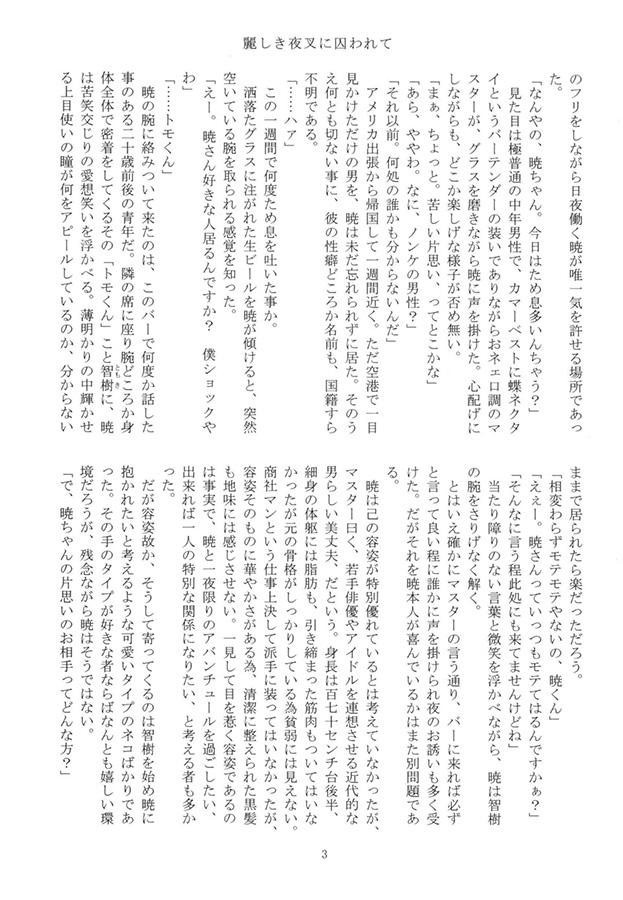 麗しき夜叉に囚われて
のフリをしながら日夜働く暁が唯一気を許せる場所であっ
「なんやの、暁ちゃん。今日はため息多いんちゃう？」
見た目は極普通の中年男性で、カマーベストに蝶ネクタ
イというバーテンダーの装いでありながらおネェロ調のマ
スターが、グラスを磨きながら暁に声を掛けた。心配げに
しながらも、どこか楽しげな様子が否め無い。
「まぁ、ちょっと。苦しい片思い、ってとこかな」
「あら、ややわ。なに、ノンケの男性？」
「それ以前。何処の誰かも分からないんだ」
アメリカ出張から帰国して一週間近く。ただ空港で一目
見かけただけの男を、暁は未だ忘れられずに居た。そのう
え何とも切ない事に、彼の性癖どころか名前も、国籍すら
不明である。
「……ハァ」
この一週間で何度ため息を吐いた事か。
洒落たグラスに注がれた生ビールを暁が傾けると、突然
空いている腕を取られる感覚を知った。
「えー。暁さん好きな人居るんですか？　僕ショックや
わ」
「……トモくん」
暁の腕に絡みついて来たのは、このバーで何度か話した
事のある二十歳前後の青年だ。隣の席に座り腕どころか身
体全体で密着をしてくるその「トモくん」こと智樹に、暁
ともき
は苦笑交じりの愛想笑いを浮かべる。薄明かりの中輝かせ
る上目使いの瞳が何をアピールしているのか、分からない
ままで居られたら楽だっただろう。
「相変わらずモテモテやないの、暁くん」
「えぇー。暁さんっていっつもモテてはるんですかぁ？」
「そんなに言う程此処にも来てませんけどね」
当たり障りのない言葉と微笑を浮かべながら、暁は智樹
の腕をさりげなく解く。
とはいえ確かにマスターの言う通り、バーに来れば必ず
と言って良い程に誰かに声を掛けられ夜のお誘いも多く受
けた。だがそれを暁本人が喜んでいるかはまた別問題であ
る。
暁は己の容姿が特別優れているとは考えていなかったが、
マスター曰く、若手俳優やアイドルを連想させる近代的な
男らしい美丈夫、だという。身長は百七十センチ台後半、
細身の体躯には脂肪も、引き締まった筋肉もついてはいな
かったが元の骨格がしっかりしている為貧弱には見えない。
商社マンという仕事上決して派手に装ってはいなかったが、
容姿そのものに華やかさがある為、清潔に整えられた黒髪
も地味には感じさせない。一見して目を惹く容姿であるの
は事実で、暁と一夜限りのアバンチュールを過ごしたい、
出来れば一人の特別な関係になりたい、と考える者も多か
った。
だが容姿故か、そうして寄ってくるのは智樹を始め暁に
抱かれたいと考えるような可愛いタイプのネコばかりであ
った。その手のタイプが好きな者ならばなんとも嬉しい環
境だろうが、残念ながら暁はそうではない。
「で、暁ちゃんの片思いのお相手ってどんな方？」
3